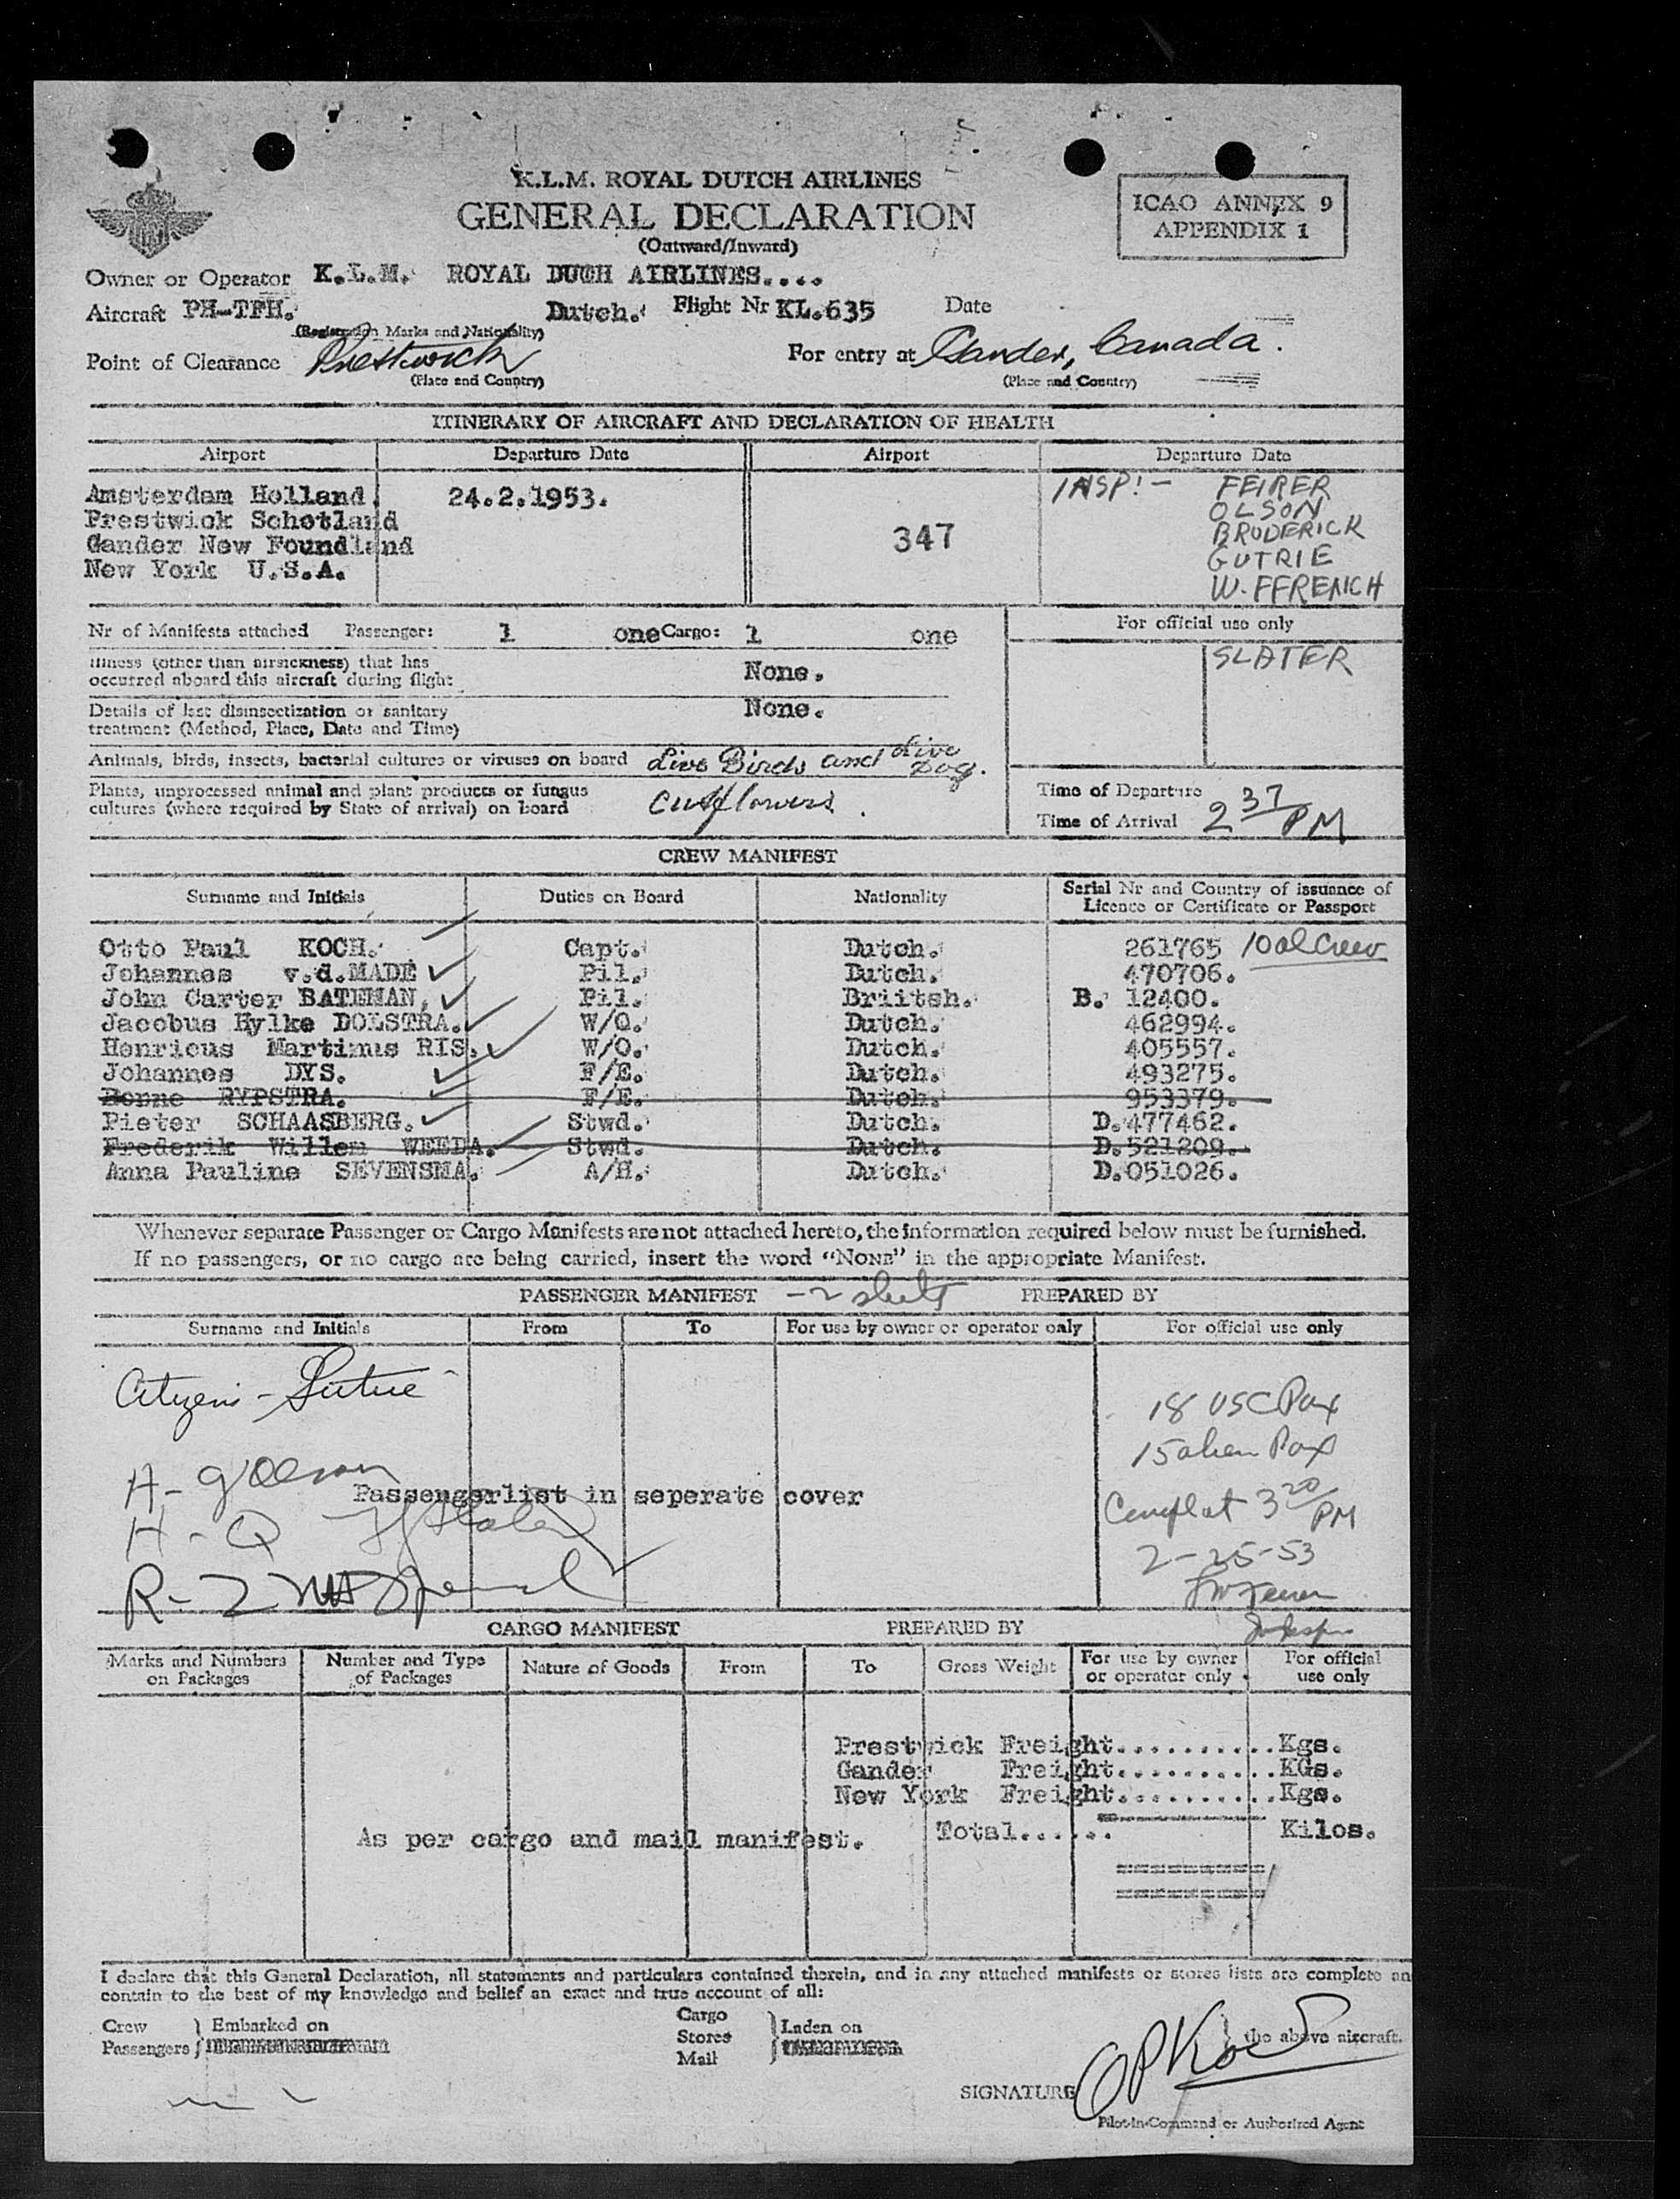 K.L.M. ROYAL DUTCH AIRLINES
GENERAL DECLARATION
(Outward/Inward)
ICAO ANNEX 9
APPENDIX 1
Owner or Operator K.L.M. ROYAL DUTCH AIRLINES....
Aircraft PH-TFH. Dutch. Flight Nr KL.635 Date
(Registration Marks and Nationality)
Point of Clearance Prestwick For entry at Gander, Canada.
(Place and Country) (Place and Country)
ITINERARY OF AIRCRAFT AND DECLARATION OF HEALTH
Airport Departure Date Airport Departure Date
Amsterdam Holland. 24.2.1953. INSP:- FEIRER
Prestwick Schotland OLSON
Gander New Foundland 347 BRODERICK
New York U.S.A. GUTRIE
W. FFRENCH
Nr of Manifests attached Passenger: 1 one Cargo: 1 one
For official use only
SLATER
Illness (other than airsickness) that has
occurred aboard this aircraft during flight None.
Details of last disinsectization or sanitary
treatment (Method, Place, Date and Time) None.
Animals, birds, insects, bacterial cultures or viruses on board Live Birds and live Dog.
Plants, unprocessed animal and plant products or fungus
cultures (where required by State of arrival) on board Cutflowers.
Time of Departure
Time of Arrival 2 37 PM
CREW MANIFEST
Surname and Initials Duties on Board Nationality Serial Nr and Country of issuance of
Licence or Certificate or Passport
Otto Paul KOCH. Capt. Dutch. 261765 10 al Crew
Johannes v.d.MADE Pil. Dutch. 470706.
John Carter BATEMAN, Pil. Briitsh. B. 12400.
Jacobus Hylke DOLSTRA. W/O. Dutch. 462994.
Henricus Martinus RIS. W/O. Dutch. 405557.
Johannes DYS. F/E. Dutch. 493275.
Benne RYPSTRA. F/E. Dutch. 953379.
Pieter SCHAASBERG. Stwd. Dutch. D.477462.
Frederik Willem WEEDA. Stwd. Dutch. D.521209.
Anna Pauline SEVENSMA. A/H. Dutch. D.051026.
Whenever separate Passenger or Cargo Manifests are not attached hereto, the information required below must be furnished.
If no passengers, or no cargo are being carried, insert the word “NONE” in the appropriate Manifest.
PASSENGER MANIFEST - 2 sheets PREPARED BY
Surname and Initials From To For use by owner or operator only For official use only
Citizens -
18 USC Pax
15 alien Pax
H-
Passengerlist in seperate cover
Complet 3 20 PM
H - Q
2-25-53
R-2
CARGO MANIFEST PREPARED BY
Marks and Numbers
on Packages
Number and Type
of Packages
Nature of Goods From To Gross Weight
For use by owner
or operator only
For official
use only
Prestwick Freight..........Kgs.
Gander Freight..........KGs.
New York Freight..........Kgs.
As per cargo and mail manifest. Total...... Kilos.
I declare that this General Declaration, all statements and particulars contained therein, and in any attached manifests or stores lists are complete an
contain to the best of my knowledge and belief an exact and true account of all:
Crew
Passengers
Embarked on
Cargo
Stores
Mail
Laden on
the above aircraft.
SIGNATURE OPKoch
Pilot-in-Command or Authorized Agent